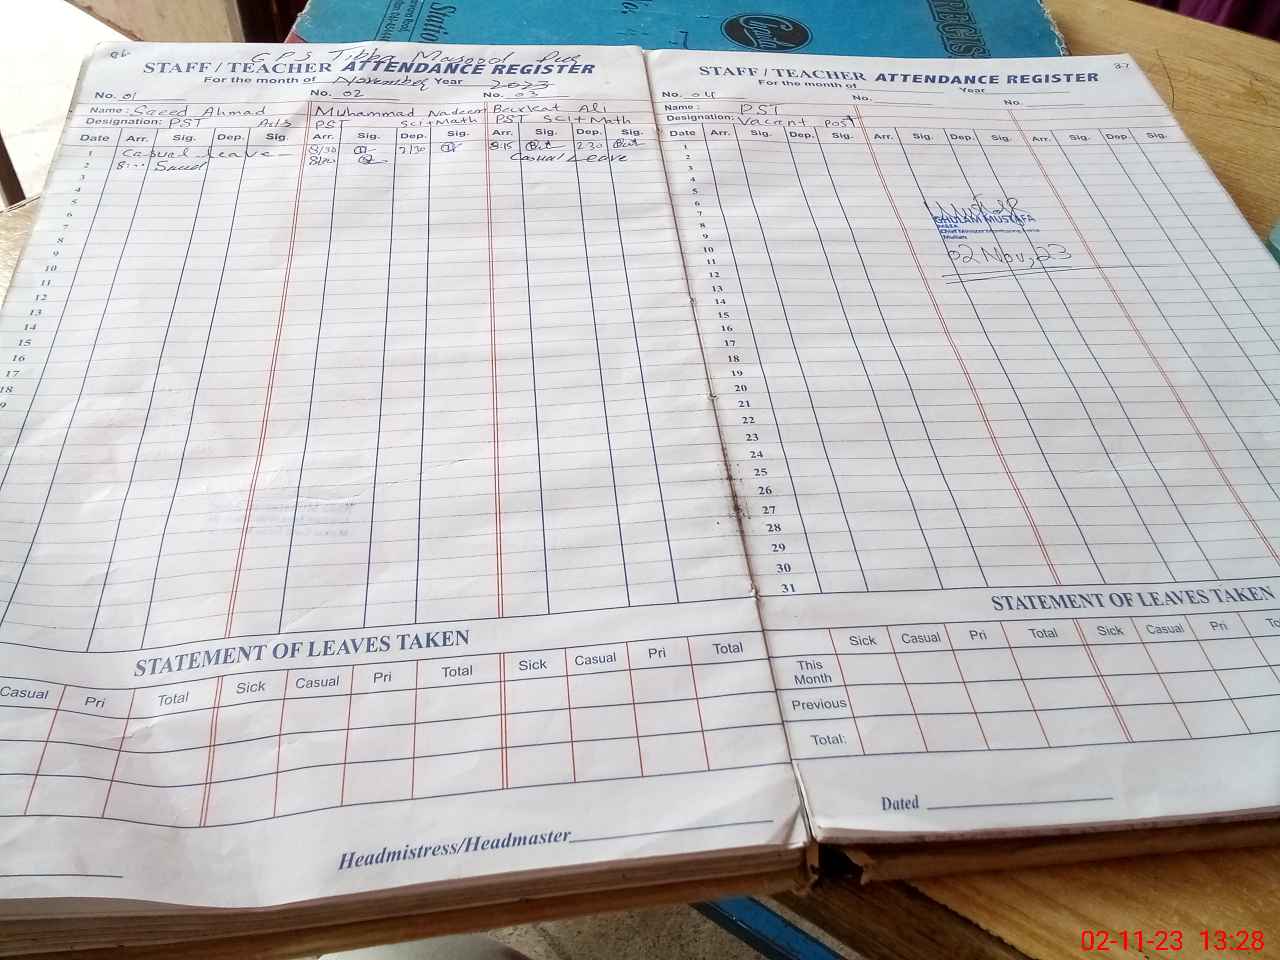 GPS Tibba Masood Pur
STAFF / TEACHER ATTENDANCE REGISTER
For the month of November Year 2023
No. 01 No. 02 No. 03
Name: Saeed Ahmad Muhammad Nadeem Barkat Ali
Designation: PST Arts PST Sci+Math PST Sci+Math
Date Arr. Sig. Dep. Sig. Arr. Sig. Dep. Sig. Arr. Sig. Dep. Sig.
1 Casual Leave 8/30 2/30 8:15 2:30
2 8:00 Saeed Casual Leave
3
4
5
6
7
8
9
10
11
12
13
14
15
16
17
18
STATEMENT OF LEAVES TAKEN
Casual Pri Total Sick Casual Pri Total Sick Casual Pri Total
Headmistress/Headmaster
37
STAFF / TEACHER ATTENDANCE REGISTER
For the month of Year
No. 04 No. No.
Name: PST
Designation: Vacant Post
Date Arr. Sig. Dep. Sig. Arr. Sig. Dep. Sig. Arr. Sig. Dep. Sig.
1
2
3
4
5
6
7
8
9
10
11
12
13
14
15
16
17
18
19
20
21
22
23
24
25
26
27
28
29
30
31
GHULAM MUSTAFA
MEA
Chief Minister Monitoring Force
Multan
02 Nov, 23
STATEMENT OF LEAVES TAKEN
Sick Casual Pri Total Sick Casual Pri
This Month
Previous
Total:
Dated
02-11-23 13:28